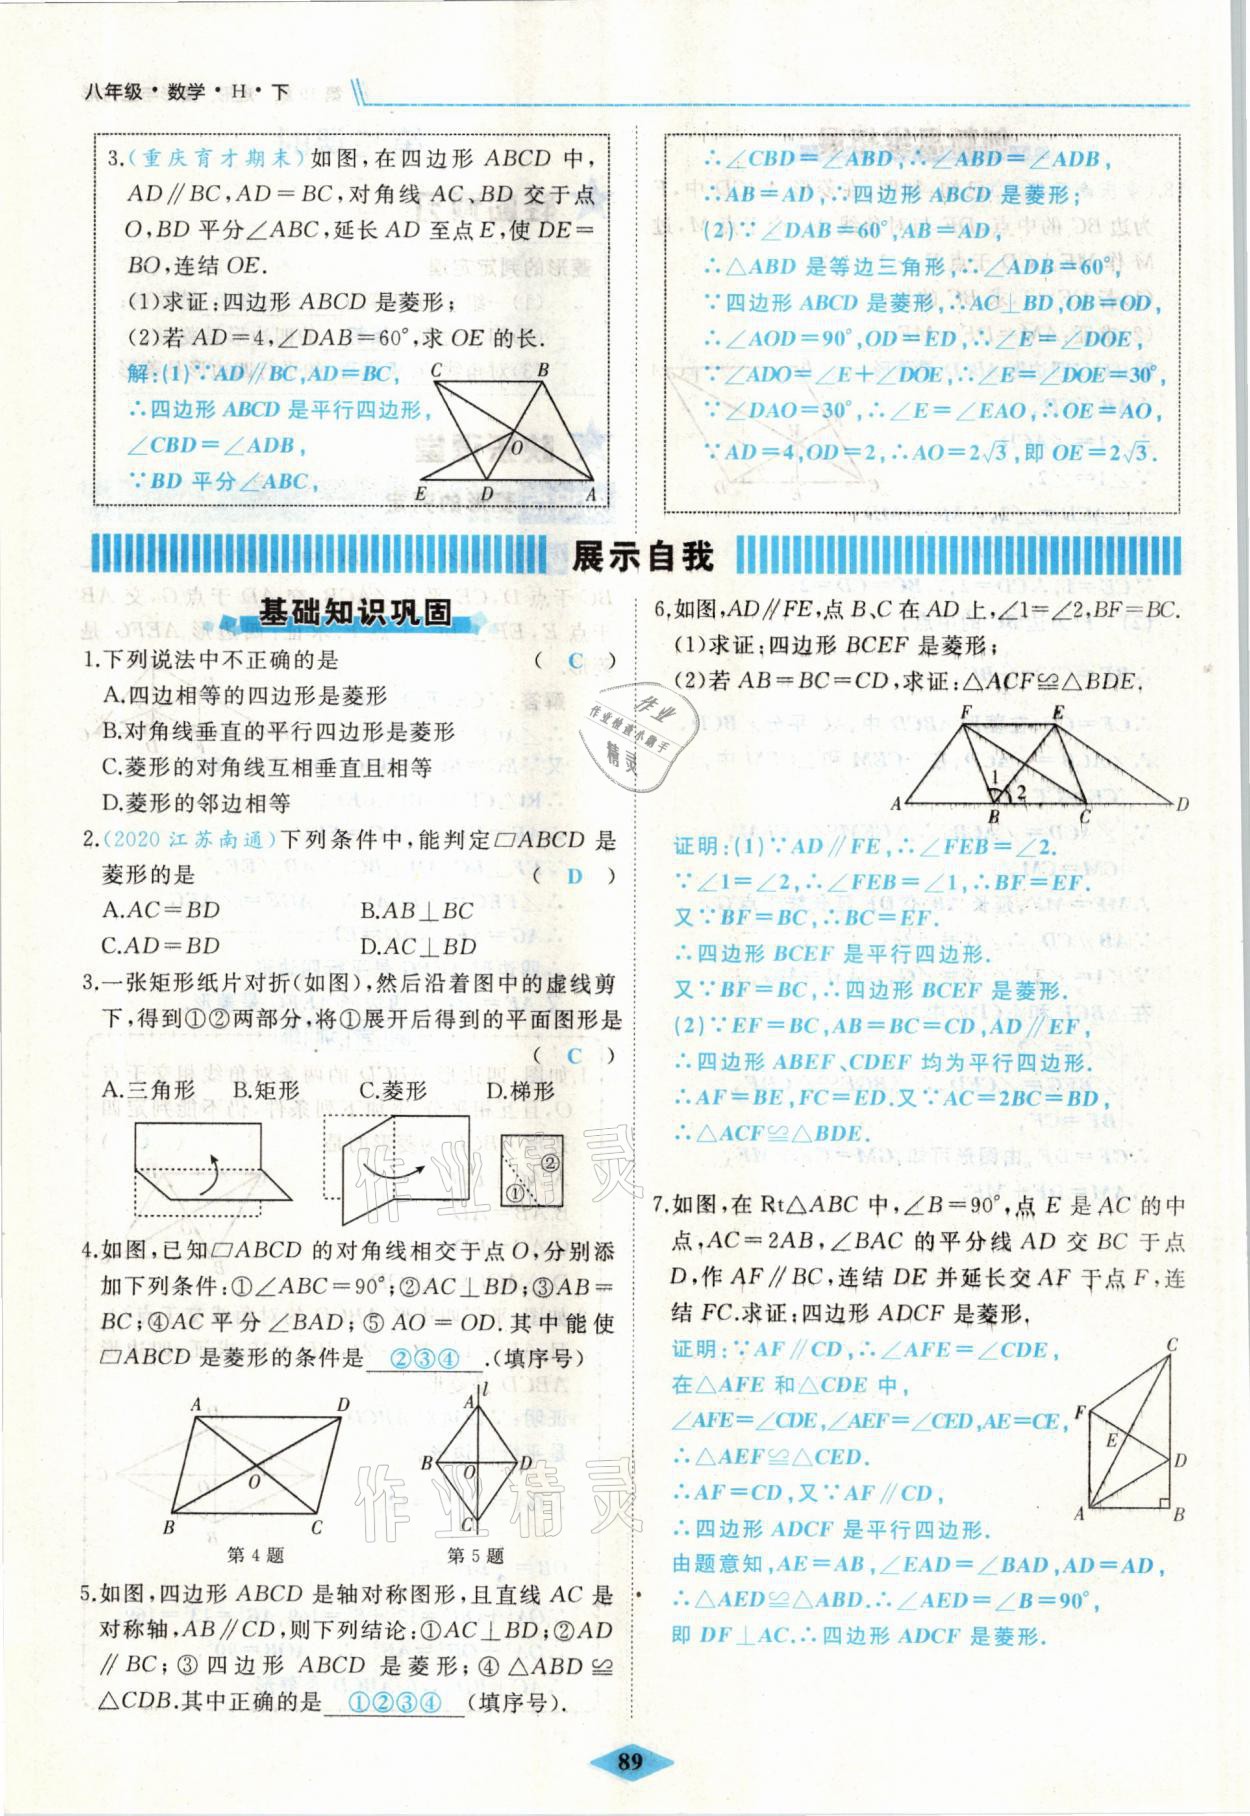 八年级·数学·H·下
3.(重庆育才期末)如图,在四边形 ABCD 中,
AD∥BC,AD=BC,对角线 AC、BD 交于点
O,BD 平分∠ABC,延长 AD 至点 E,使 DE=
BO,连结 OE.
(1)求证:四边形 ABCD 是菱形;
(2)若 AD=4,∠DAB=60°,求 OE 的长.
解:(1)∵AD∥BC,AD=BC,
∴四边形 ABCD 是平行四边形,
∠CBD=∠ADB,
∵BD 平分∠ABC,
C B
O
E D A
∴∠CBD=∠ABD,∴∠ABD=∠ADB,
∴AB=AD,∴四边形 ABCD 是菱形;
(2)∵∠DAB=60°,AB=AD,
∴△ABD 是等边三角形,∴∠ADB=60°,
∵四边形 ABCD 是菱形,∴AC⊥BD,OB=OD,
∴∠AOD=90°,OD=ED,∴∠E=∠DOE,
∵∠ADO=∠E+∠DOE,∴∠E=∠DOE=30°,
∵∠DAO=30°,∴∠E=∠EAO,∴OE=AO,
∵AD=4,OD=2,∴AO=2√3,即 OE=2√3.
展示自我
基础知识巩固
1.下列说法中不正确的是 ( C )
A.四边相等的四边形是菱形
B.对角线垂直的平行四边形是菱形
C.菱形的对角线互相垂直且相等
D.菱形的邻边相等
2.(2020 江苏南通)下列条件中,能判定▱ABCD 是
菱形的是 ( D )
A.AC=BD B.AB⊥BC
C.AD=BD D.AC⊥BD
3.一张矩形纸片对折(如图),然后沿着图中的虚线剪
下,得到①②两部分,将①展开后得到的平面图形是
( C )
A.三角形 B.矩形 C.菱形 D.梯形
②
①
4.如图,已知▱ABCD 的对角线相交于点 O,分别添
加下列条件:①∠ABC=90°;②AC⊥BD;③AB=
BC;④AC 平分∠BAD;⑤AO=OD.其中能使
▱ABCD 是菱形的条件是 ②③④ .(填序号)
A D
O
B C
第 4 题
l
A
B O D
C
第 5 题
5.如图,四边形 ABCD 是轴对称图形,且直线 AC 是
对称轴,AB∥CD,则下列结论:①AC⊥BD;②AD
∥BC;③四边形 ABCD 是菱形;④△ABD≌
△CDB.其中正确的是 ①②③④ (填序号).
6.如图,AD∥FE,点 B、C 在 AD 上,∠1=∠2,BF=BC.
(1)求证:四边形 BCEF 是菱形;
(2)若 AB=BC=CD,求证:△ACF≌△BDE.
F E
1 2
A B C D
证明:(1)∵AD∥FE,∴∠FEB=∠2.
∵∠1=∠2,∴∠FEB=∠1,∴BF=EF.
又∵BF=BC,∴BC=EF.
∴四边形 BCEF 是平行四边形.
又∵BF=BC,∴四边形 BCEF 是菱形.
(2)∵EF=BC,AB=BC=CD,AD∥EF,
∴四边形 ABEF、CDEF 均为平行四边形.
∴AF=BE,FC=ED.又∵AC=2BC=BD,
∴△ACF≌△BDE.
7.如图,在 Rt△ABC 中,∠B=90°,点 E 是 AC 的中
点,AC=2AB,∠BAC 的平分线 AD 交 BC 于点
D,作 AF∥BC,连结 DE 并延长交 AF 于点 F,连
结 FC.求证:四边形 ADCF 是菱形.
证明:∵AF∥CD,∴∠AFE=∠CDE,
在△AFE 和△CDE 中,
∠AFE=∠CDE,∠AEF=∠CED,AE=CE,
∴△AEF≌△CED.
∴AF=CD,又∵AF∥CD,
∴四边形 ADCF 是平行四边形.
由题意知,AE=AB,∠EAD=∠BAD,AD=AD,
∴△AED≌△ABD.∴∠AED=∠B=90°,
即 DF⊥AC.∴四边形 ADCF 是菱形.
C
F
E
D
A B
作业
作业检查小助手
精灵
作业精灵
作业精灵
89